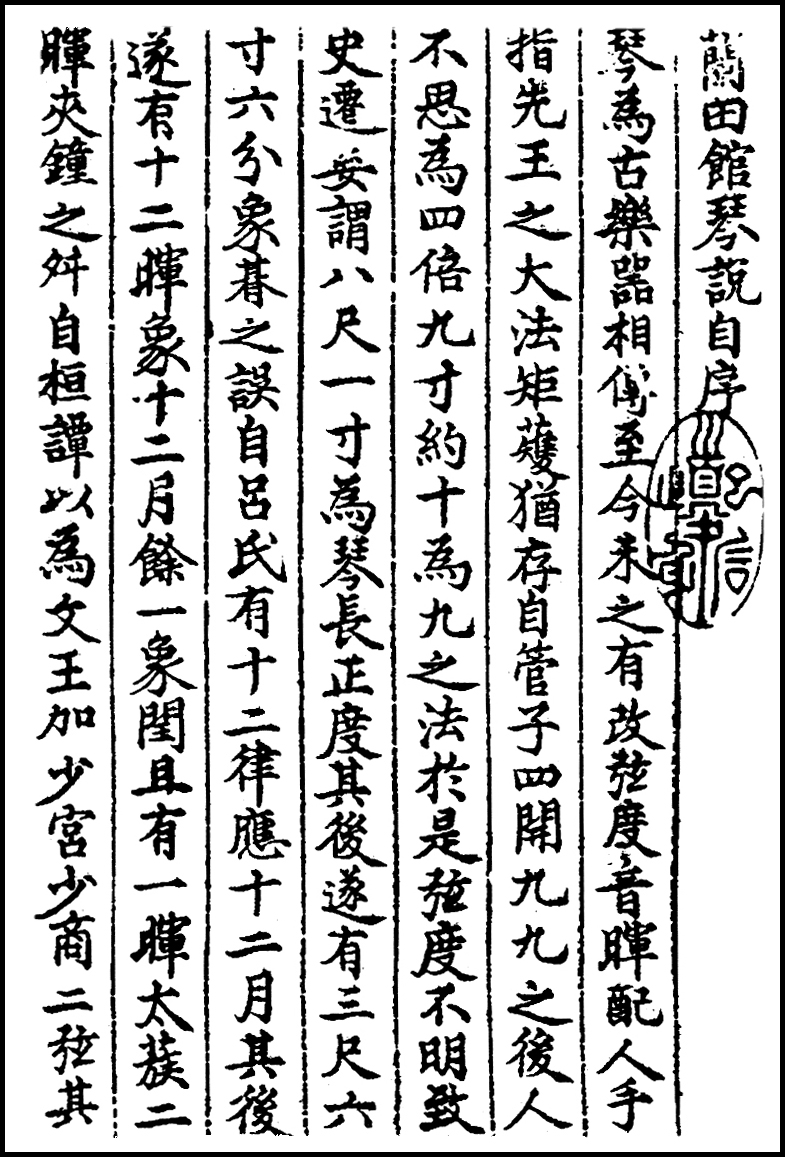 蘭田館琴説自序
琴為古樂器相傳至今未之有改弦度音暉配人手
指先王之大法矩蒦猶存自管子四開九九之後人
不思為四倍九寸約十為九之法於是弦度不明致
史遷妄謂八尺一寸為琴長正度其後遂有三尺六
寸六分象朞之誤自呂氏有十二律應十二月其後
遂有十二暉象十二月餘一象閏且有一暉太蔟二
暉夾鐘之舛自桓譚以為文王加少宮少商二弦其